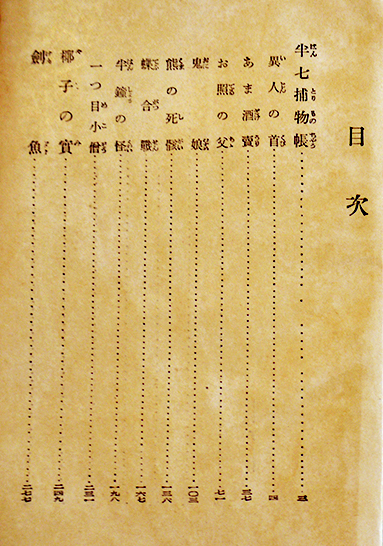 目次
半七捕物帳……三
異人の首……四
あま酒賣……三七
お照の父……七一
鬼娘……一〇三
熊の死骸……一三六
蝶合戰……一六七
半鐘の怪……一九八
一つ目小僧……二三一
椰子の實……二四九
劍魚……二七七